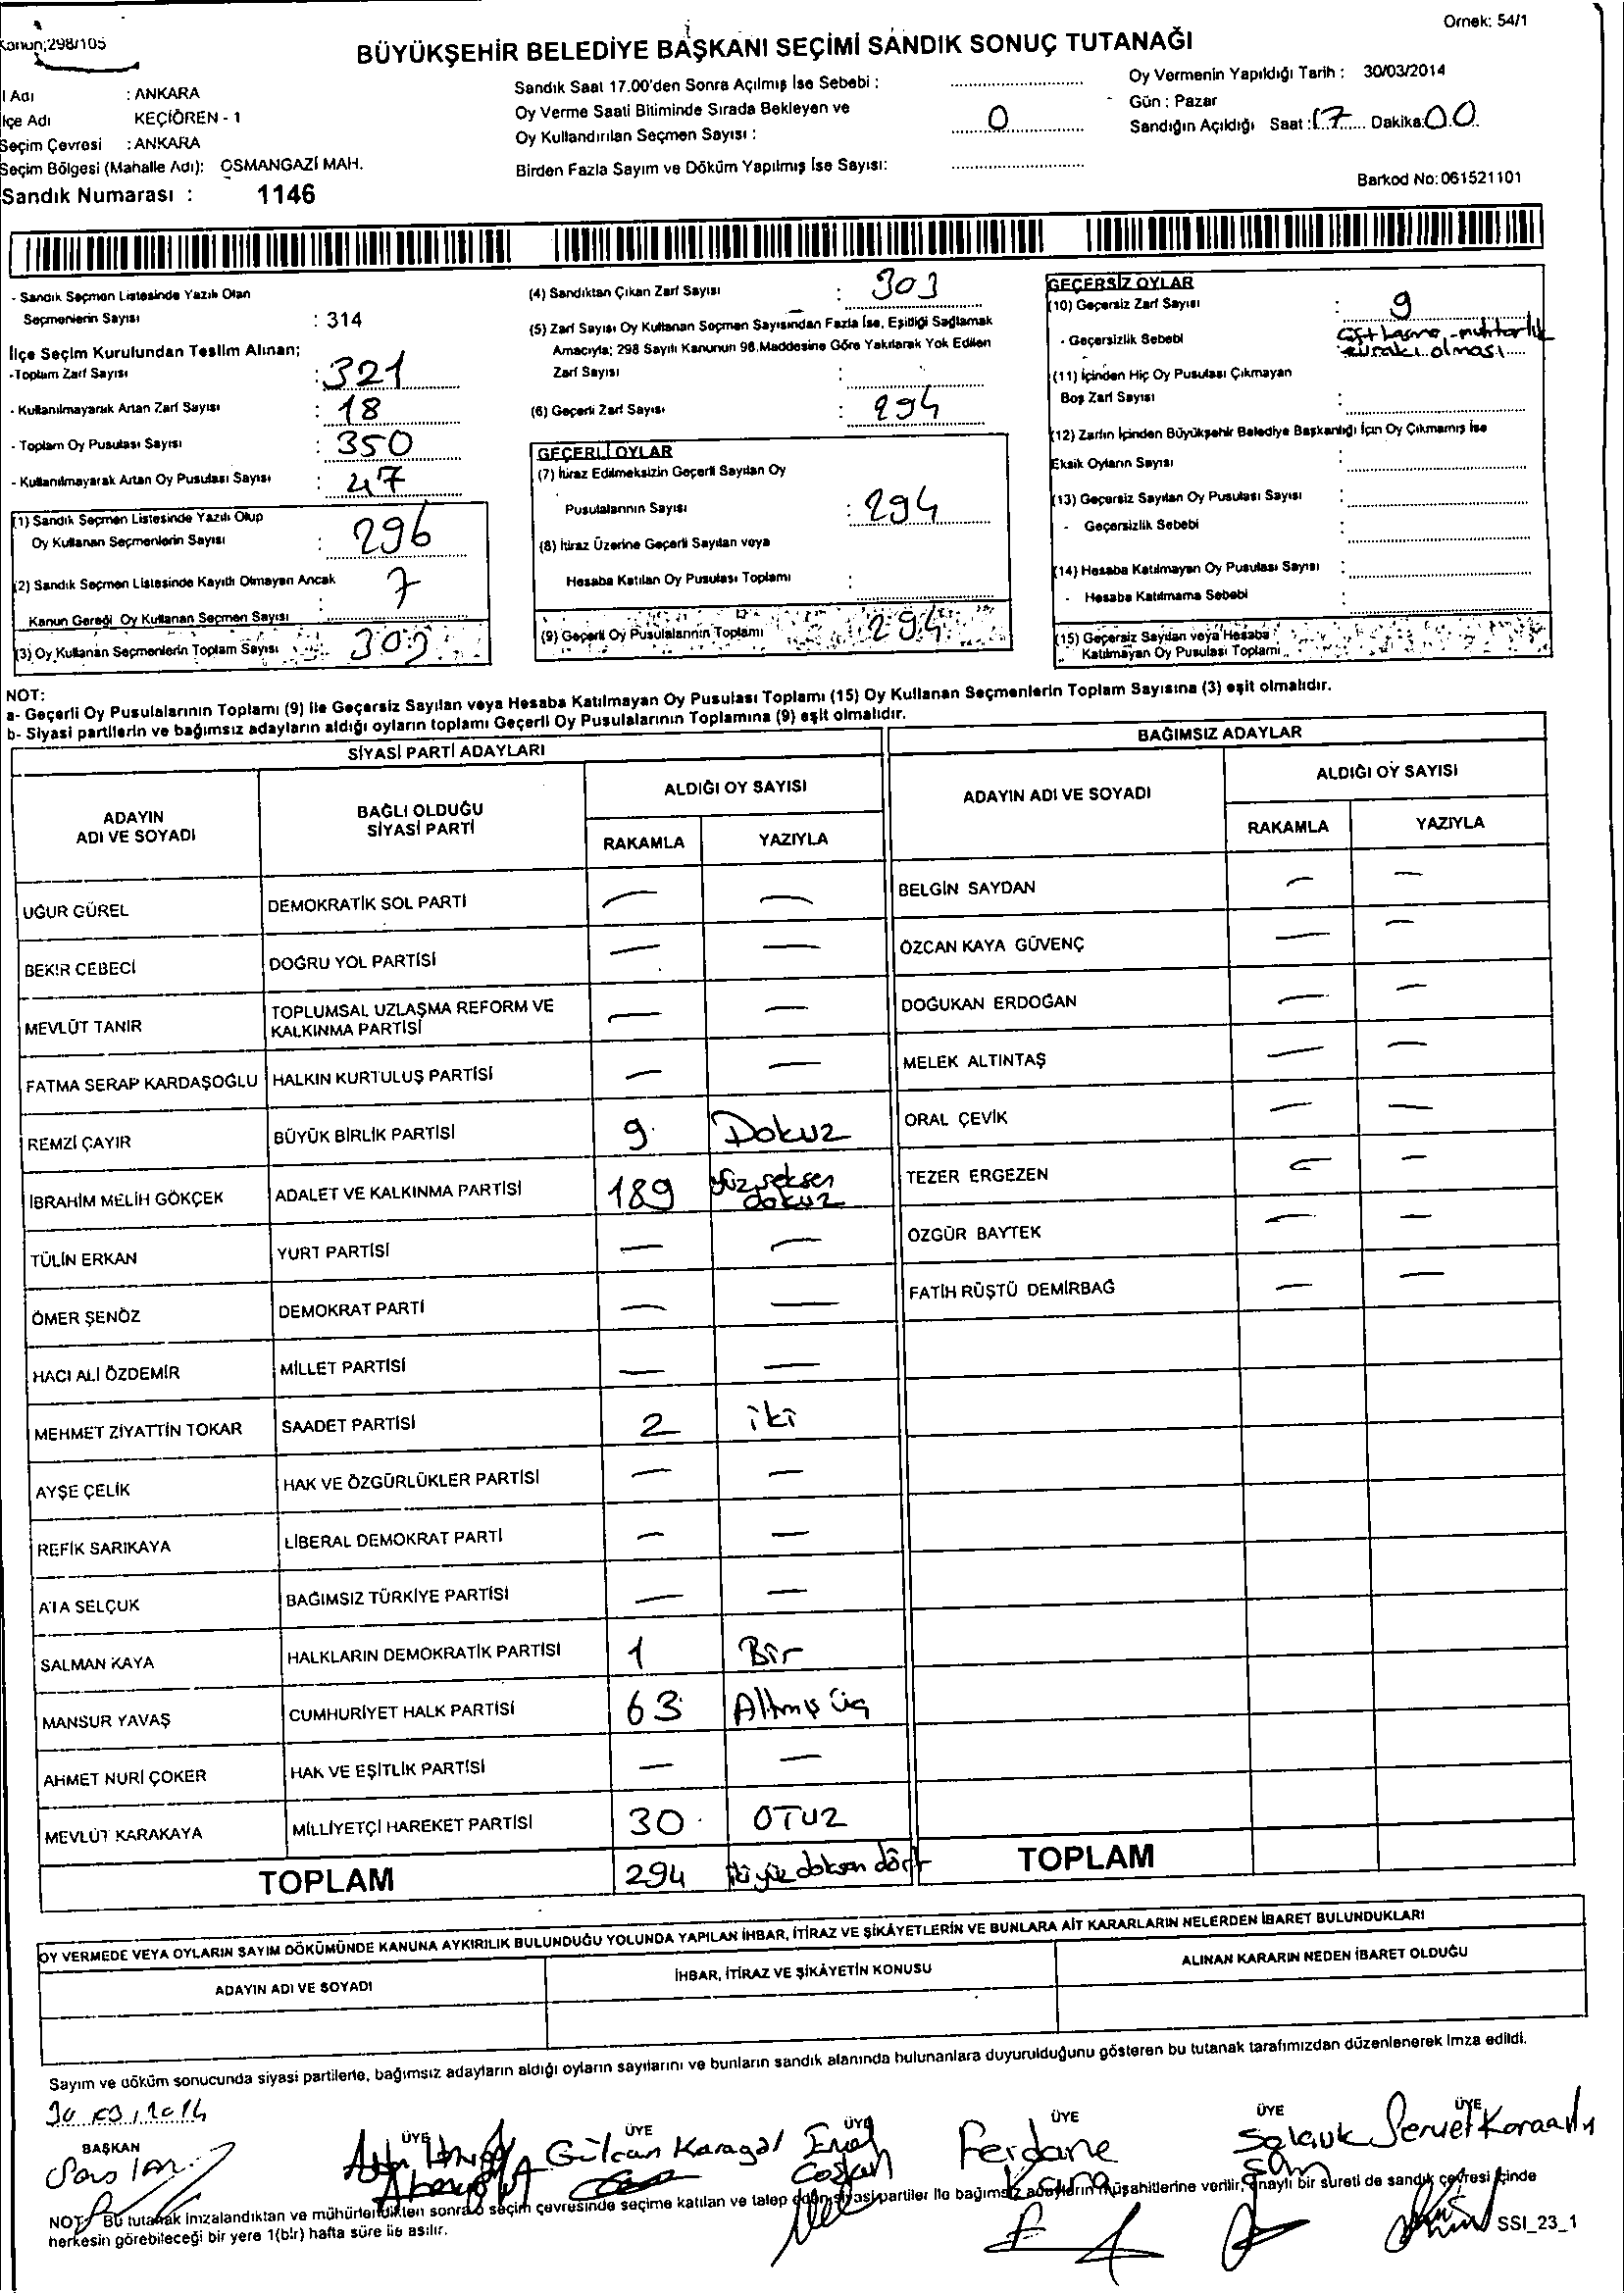 Kanun;298/105
Örnek: 54/1
BÜYÜKŞEHİR BELEDİYE BAŞKANI SEÇİMİ SANDIK SONUÇ TUTANAĞI
İl Adı : ANKARA
İlçe Adı KEÇİÖREN - 1
Seçim Çevresi : ANKARA
Seçim Bölgesi (Mahalle Adı): OSMANGAZİ MAH.
Sandık Numarası : 1146
Sandık Saat 17.00'den Sonra Açılmış İse Sebebi :
Oy Verme Saati Bitiminde Sırada Bekleyen ve
Oy Kullandırılan Seçmen Sayısı : 0
Birden Fazla Sayım ve Döküm Yapılmış İse Sayısı:
Oy Vermenin Yapıldığı Tarih : 30/03/2014
Gün : Pazar
Sandığın Açıldığı Saat : 17 Dakika: 00
Barkod No: 061521101
- Sandık Seçmen Listesinde Yazılı Olan
Seçmenlerin Sayısı : 314
İlçe Seçim Kurulundan Teslim Alınan;
-Toplam Zarf Sayısı : 321
- Kullanılmayarak Artan Zarf Sayısı : 18
- Toplam Oy Pusulası Sayısı : 350
- Kullanılmayarak Artan Oy Pusulası Sayısı : 47
(1) Sandık Seçmen Listesinde Yazılı Olup
Oy Kullanan Seçmenlerin Sayısı : 296
(2) Sandık Seçmen Listesinde Kayıtlı Olmayan Ancak
Kanun Gereği Oy Kullanan Seçmen Sayısı : 7
(3) Oy Kullanan Seçmenlerin Toplam Sayısı 303
(4) Sandıktan Çıkan Zarf Sayısı : 303
(5) Zarf Sayısı Oy Kullanan Seçmen Sayısından Fazla İse, Eşitliği Sağlamak
Amacıyla; 298 Sayılı Kanunun 98.Maddesine Göre Yakılarak Yok Edilen
Zarf Sayısı :
(6) Geçerli Zarf Sayısı : 294
GEÇERLİ OYLAR
(7) İtiraz Edilmeksizin Geçerli Sayılan Oy
Pusulalarının Sayısı : 294
(8) İtiraz Üzerine Geçerli Sayılan veya
Hesaba Katılan Oy Pusulası Toplamı :
(9) Geçerli Oy Pusulalarının Toplamı 294
GEÇERSİZ OYLAR
(10) Geçersiz Zarf Sayısı : 9
- Geçersizlik Sebebi muhtarlık
olması
(11) İçinden Hiç Oy Pusulası Çıkmayan
Boş Zarf Sayısı :
(12) Zarfın İçinden Büyükşehir Belediye Başkanlığı İçin Oy Çıkmamış İse
Eksik Oyların Sayısı :
(13) Geçersiz Sayılan Oy Pusulası Sayısı :
- Geçersizlik Sebebi :
(14) Hesaba Katılmayan Oy Pusulası Sayısı :
- Hesaba Katılmama Sebebi :
(15) Geçersiz Sayılan veya Hesaba
Katılmayan Oy Pusulası Toplamı
NOT:
a- Geçerli Oy Pusulalarının Toplamı (9) ile Geçersiz Sayılan veya Hesaba Katılmayan Oy Pusulası Toplamı (15) Oy Kullanan Seçmenlerin Toplam Sayısına (3) eşit olmalıdır.
b- Siyasi partilerin ve bağımsız adayların aldığı oyların toplamı Geçerli Oy Pusulalarının Toplamına (9) eşit olmalıdır.
SİYASİ PARTİ ADAYLARI
ADAYIN ADI VE SOYADI
BAĞLI OLDUĞU SİYASİ PARTİ
ALDIĞI OY SAYISI
RAKAMLA YAZIYLA
UĞUR GÜREL DEMOKRATİK SOL PARTİ — —
BEKİR CEBECİ DOĞRU YOL PARTİSİ — —
MEVLÜT TANIR TOPLUMSAL UZLAŞMA REFORM VE KALKINMA PARTİSİ — —
FATMA SERAP KARDAŞOĞLU HALKIN KURTULUŞ PARTİSİ — —
REMZİ ÇAYIR BÜYÜK BİRLİK PARTİSİ 9 Dokuz
İBRAHİM MELİH GÖKÇEK ADALET VE KALKINMA PARTİSİ 189 yüzseksen dokuz
TÜLİN ERKAN YURT PARTİSİ — —
ÖMER ŞENÖZ DEMOKRAT PARTİ — —
HACI ALİ ÖZDEMİR MİLLET PARTİSİ — —
MEHMET ZİYATTİN TOKAR SAADET PARTİSİ 2 iki
AYŞE ÇELİK HAK VE ÖZGÜRLÜKLER PARTİSİ — —
REFİK SARIKAYA LİBERAL DEMOKRAT PARTİ — —
ATA SELÇUK BAĞIMSIZ TÜRKİYE PARTİSİ — —
SALMAN KAYA HALKLARIN DEMOKRATİK PARTİSİ 1 Bir
MANSUR YAVAŞ CUMHURİYET HALK PARTİSİ 63 Altmış üç
AHMET NURİ ÇOKER HAK VE EŞİTLİK PARTİSİ — —
MEVLÜT KARAKAYA MİLLİYETÇİ HAREKET PARTİSİ 30 OTUZ
TOPLAM 294 ikiyüz doksan dört
BAĞIMSIZ ADAYLAR
ADAYIN ADI VE SOYADI
ALDIĞI OY SAYISI
RAKAMLA YAZIYLA
BELGİN SAYDAN — —
ÖZCAN KAYA GÜVENÇ — —
DOĞUKAN ERDOĞAN — —
MELEK ALTINTAŞ — —
ORAL ÇEVİK — —
TEZER ERGEZEN — —
ÖZGÜR BAYTEK — —
FATİH RÜŞTÜ DEMİRBAĞ — —
TOPLAM
OY VERMEDE VEYA OYLARIN SAYIM DÖKÜMÜNDE KANUNA AYKIRILIK BULUNDUĞU YOLUNDA YAPILAN İHBAR, İTİRAZ VE ŞİKÂYETLERİN VE BUNLARA AİT KARARLARIN NELERDEN İBARET BULUNDUKLARI
ADAYIN ADI VE SOYADI İHBAR, İTİRAZ VE ŞİKÂYETİN KONUSU ALINAN KARARIN NEDEN İBARET OLDUĞU
Sayım ve döküm sonucunda siyasi partilerle, bağımsız adayların aldığı oyların sayılarını ve bunların sandık alanında bulunanlara duyurulduğunu gösteren bu tutanak tarafımızdan düzenlenerek imza edildi.
30/03/2014
BAŞKAN ÜYE ÜYE ÜYE ÜYE ÜYE ÜYE
Gülcan Karagöl
Ferdane
Selçuk
Servet
NOT: Bu tutanak imzalandıktan ve mühürlendikten sonra o seçim çevresinde seçime katılan ve talep eden siyasi partiler ile bağımsız adayların müşahitlerine verilir, onaylı bir sureti de sandık çevresi içinde
herkesin görebileceği bir yere 1(bir) hafta süre ile asılır.
SSI_23_1